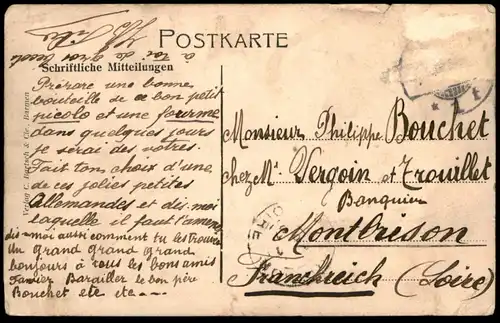 POSTKARTE
Schriftliche Mitteilungen
Prépare une bonne
bouteille de ce bon petit
picolo et une fourme
dans quelques jours
je serai des votres.
Fait ton choix d'une
de ces jolies petites
Allemandes et dis-moi
laquelle il faut t'amener
dis-moi aussi comment tu les trouves
Un grand grand grand
bonjours à tous les bons amis
Barailler le bon père
Bouchet etc etc
à toi de gros
Monsieur Philippe Bouchet
chez Mr Vergoin et Trouillet
Banquier
Montbrison
Franckreich (Loire)
Verlag C. & Cie., Barmen